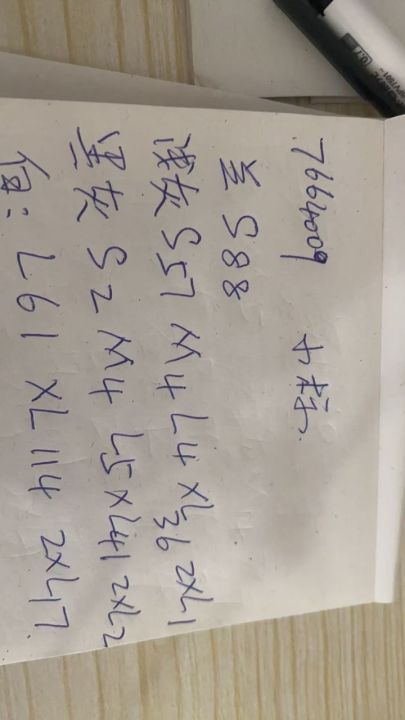 7664009 大标
兰 S88
浅灰 S57 M4 L4 XL36 2XL1
黑灰 S2 M4 L5 XL41 2XL2
白: L61 XL114 2XL17